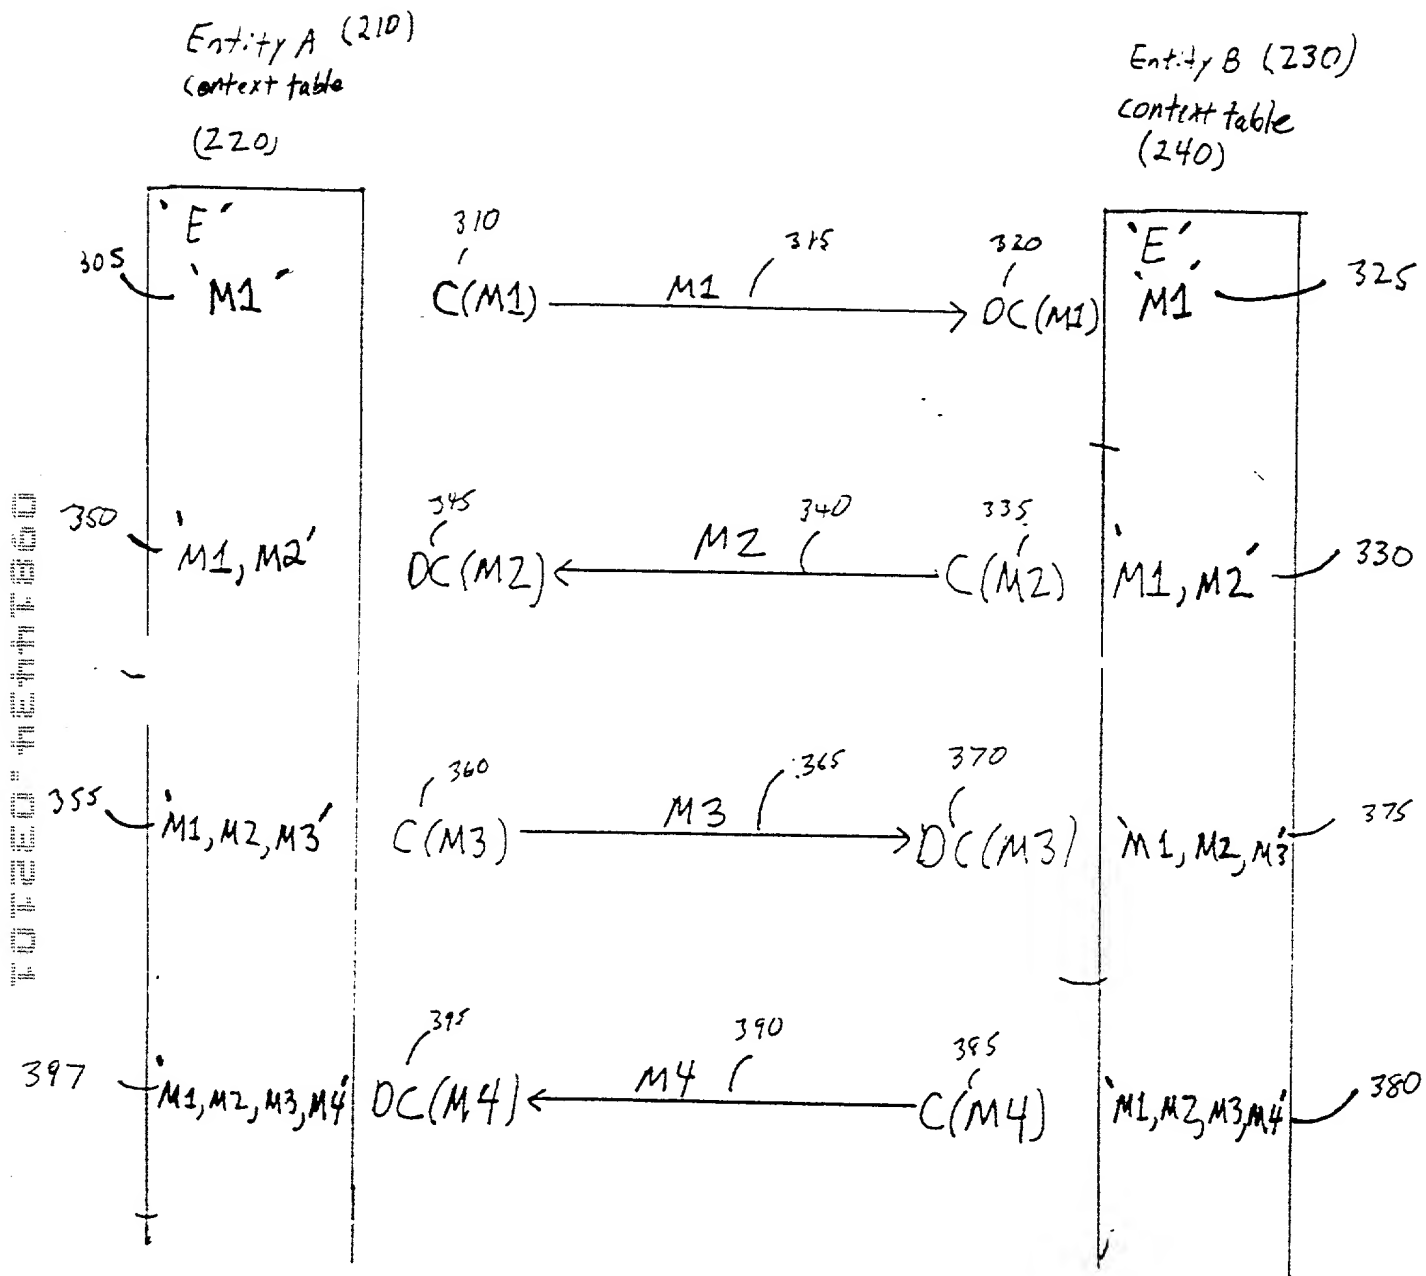 Entity A (210)
context table
(220)
Entity B (230)
context table
(240)
'E'
310
315
320
'E'
305
'M1'
C(M1)
M1
DC(M1)
'M1'
325
350
'M1, M2'
345
DC(M2)
M2
340
335
C(M2)
'M1, M2'
330
355
'M1, M2, M3'
360
C(M3)
M3
365
370
DC(M3)
'M1, M2, M3'
375
397
'M1, M2, M3, M4'
395
DC(M4)
M4
390
385
C(M4)
'M1, M2, M3, M4'
380